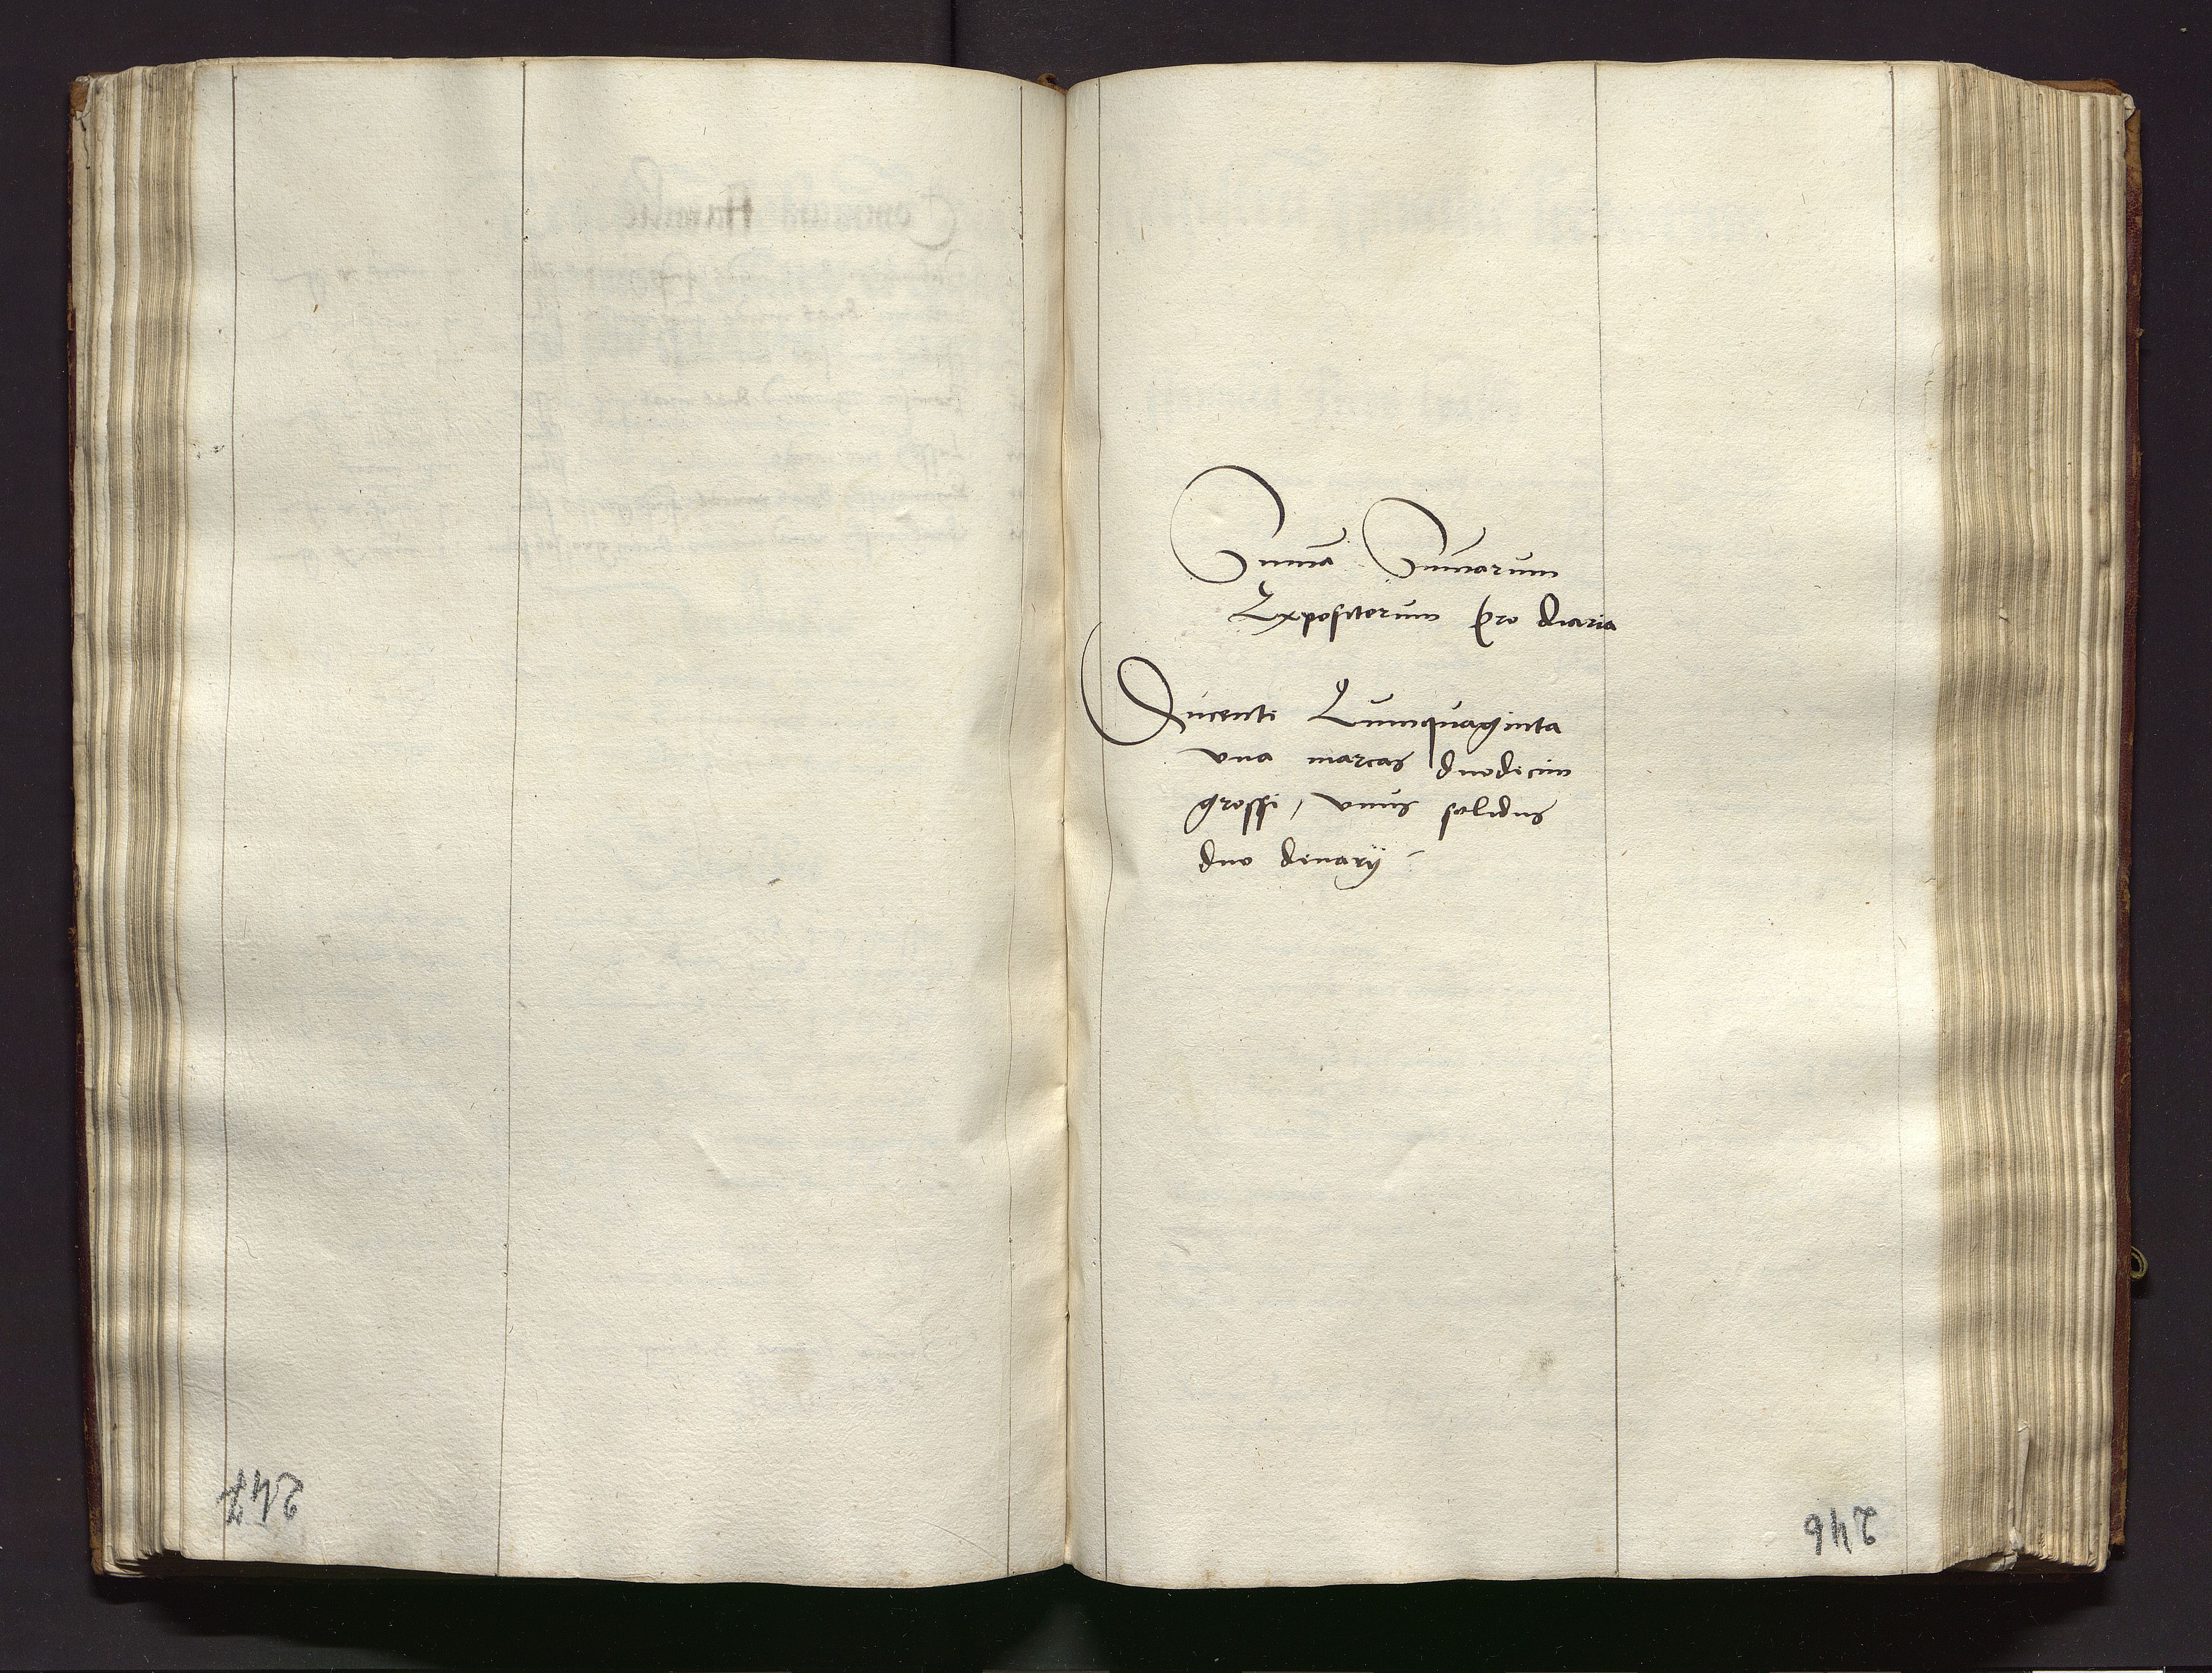 Summa Summarum
Expositorum pro diaria
Ducenti Quinquaginta
una marcas duodecim
grossi, unus solidus
duo denarij
247
246